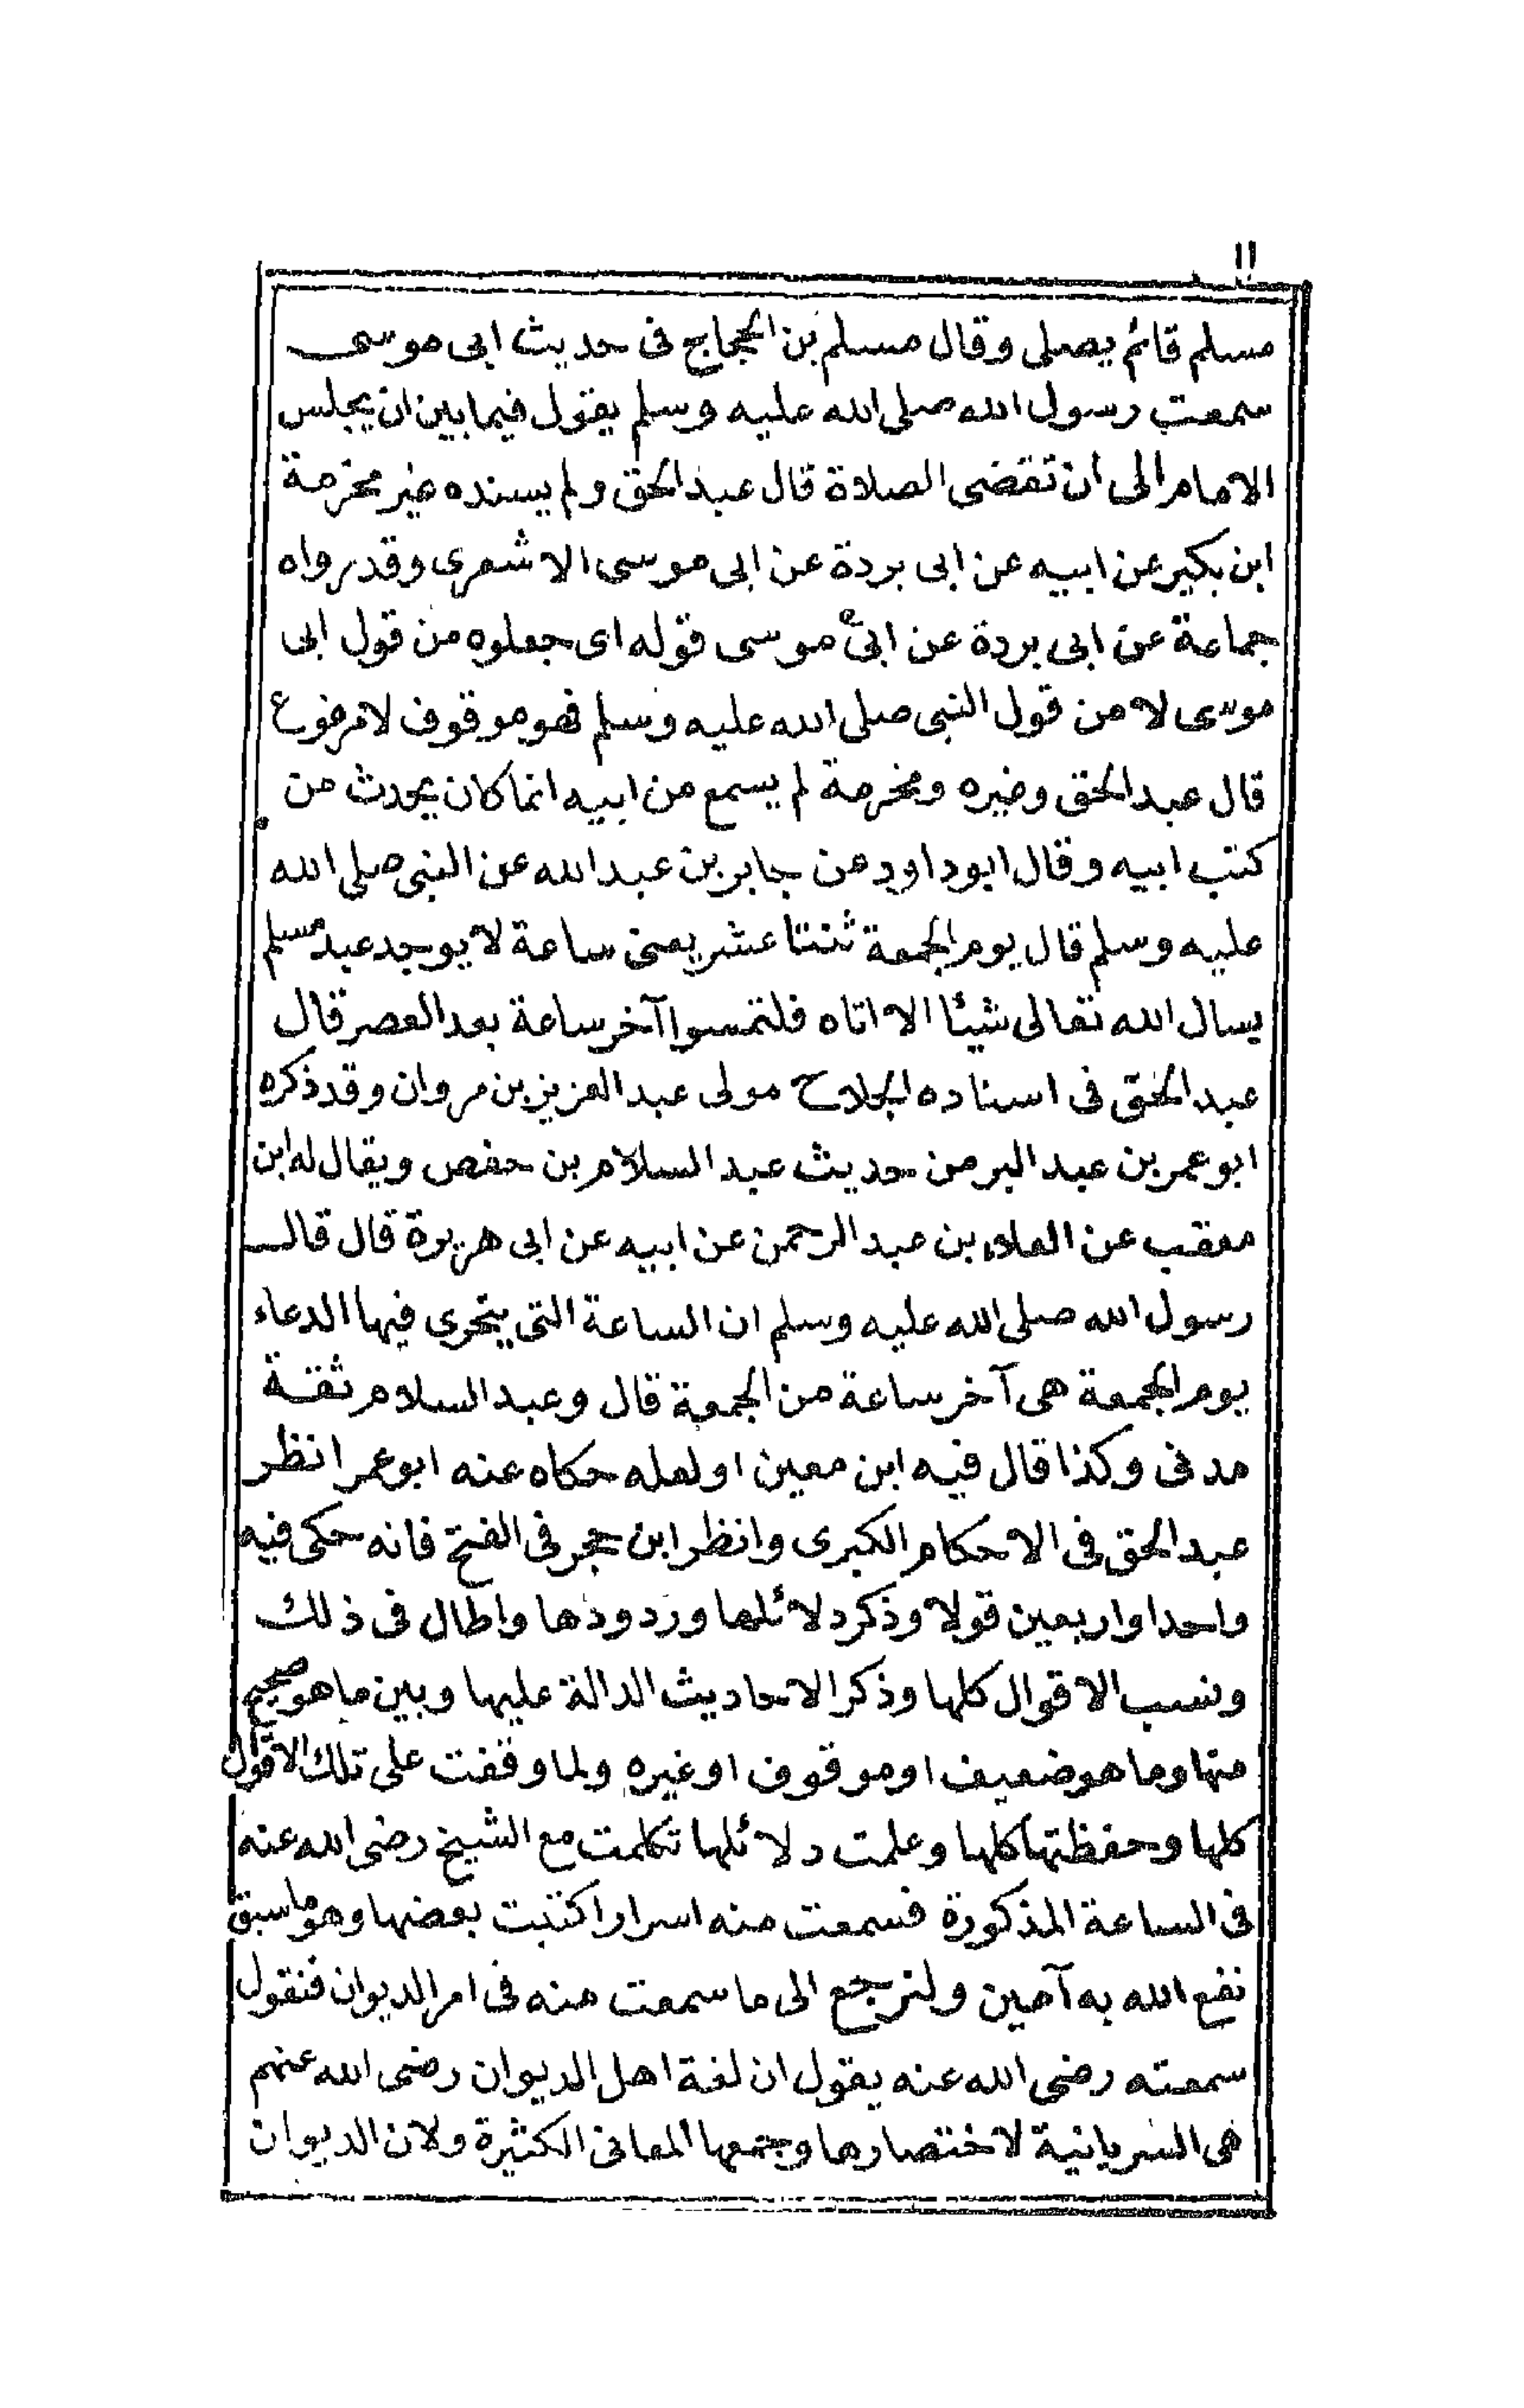 ١١
مسلم قائم يصلى وقال مسلم بن الحجاج فى حديث ابى موسى
سمعت رسول الله صلى الله عليه وسلم يقول فيما بين ان يجلس
الامام الى ان تقضى الصلاة قال عبد الحق ولم يسنده غير مخرمة
ابن بكير عن ابيه عن ابى بردة عن ابى موسى الاشعرى وقد رواه
جماعة عن ابى بردة عن ابى موسى قوله اى جعلوه من قول ابى
موسى لا من قول النبى صلى الله عليه وسلم فهو موقوف لا مرفوع
قال عبد الحق وغيره ومخرمة لم يسمع من ابيه انما كان يحدث من
كتب ابيه وقال ابو داود عن جابر بن عبد الله عن النبى صلى الله
عليه وسلم قال يوم الجمعة ثنتا عشر يعنى ساعة لا يوجد عبد مسلم
يسال الله تعالى شيئا الا اتاه فلتمسوا آخر ساعة بعد العصر قال
عبد الحق فى اسناده الجلاح مولى عبد العزيز بن مروان وقد ذكره
ابو عمر بن عبد البر من حديث عبد السلام بن حفص ويقال له ابن
معقب عن العلاء بن عبد الرحمن عن ابيه عن ابى هريرة قال قال
رسول الله صلى الله عليه وسلم ان الساعة التى يتحرى فيها الدعاء
يوم الجمعة هى آخر ساعة من الجمعة قال وعبد السلام ثقة
مدنى وكذا قال فيه ابن معين او لعله حكاه عنه ابو عمر انظر
عبد الحق فى الاحكام الكبرى وانظر ابن حجر فى الفتح فانه حكى فيه
واحدا واربعين قولا وذكر دلائلها وردودها واطال فى ذلك
ونسب الاقوال كلها وذكر الاحاديث الدالة عليها وبين ما هو صحيح
منها وما هو ضعيف او موقوف او غيره ولما وقفت على تلك الاقوال
كلها وحفظتها كلها وعلمت دلائلها تكلمت مع الشيخ رضى الله عنه
فى الساعة المذكورة فسمعت منه اسرارا كتبت بعضها وهو ما سبق
نفع الله به آمين ولنرجع الى ما سمعت منه فى امر الديوان فنقول
سمعته رضى الله عنه يقول ان لغة اهل الديوان رضى الله عنهم
هى السريانية لاختصارها وجمعها المعانى الكثيرة ولان الديوان